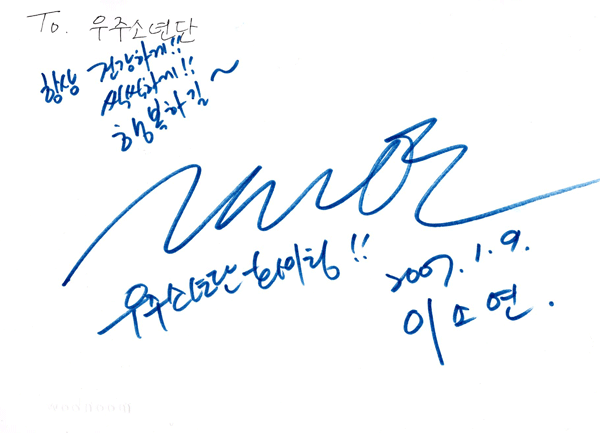 To. 우주소년단
항상 건강하게!!
씩씩하게!!
행복하길~
우주소년단 화이팅!!
2007.1.9.
이소연.